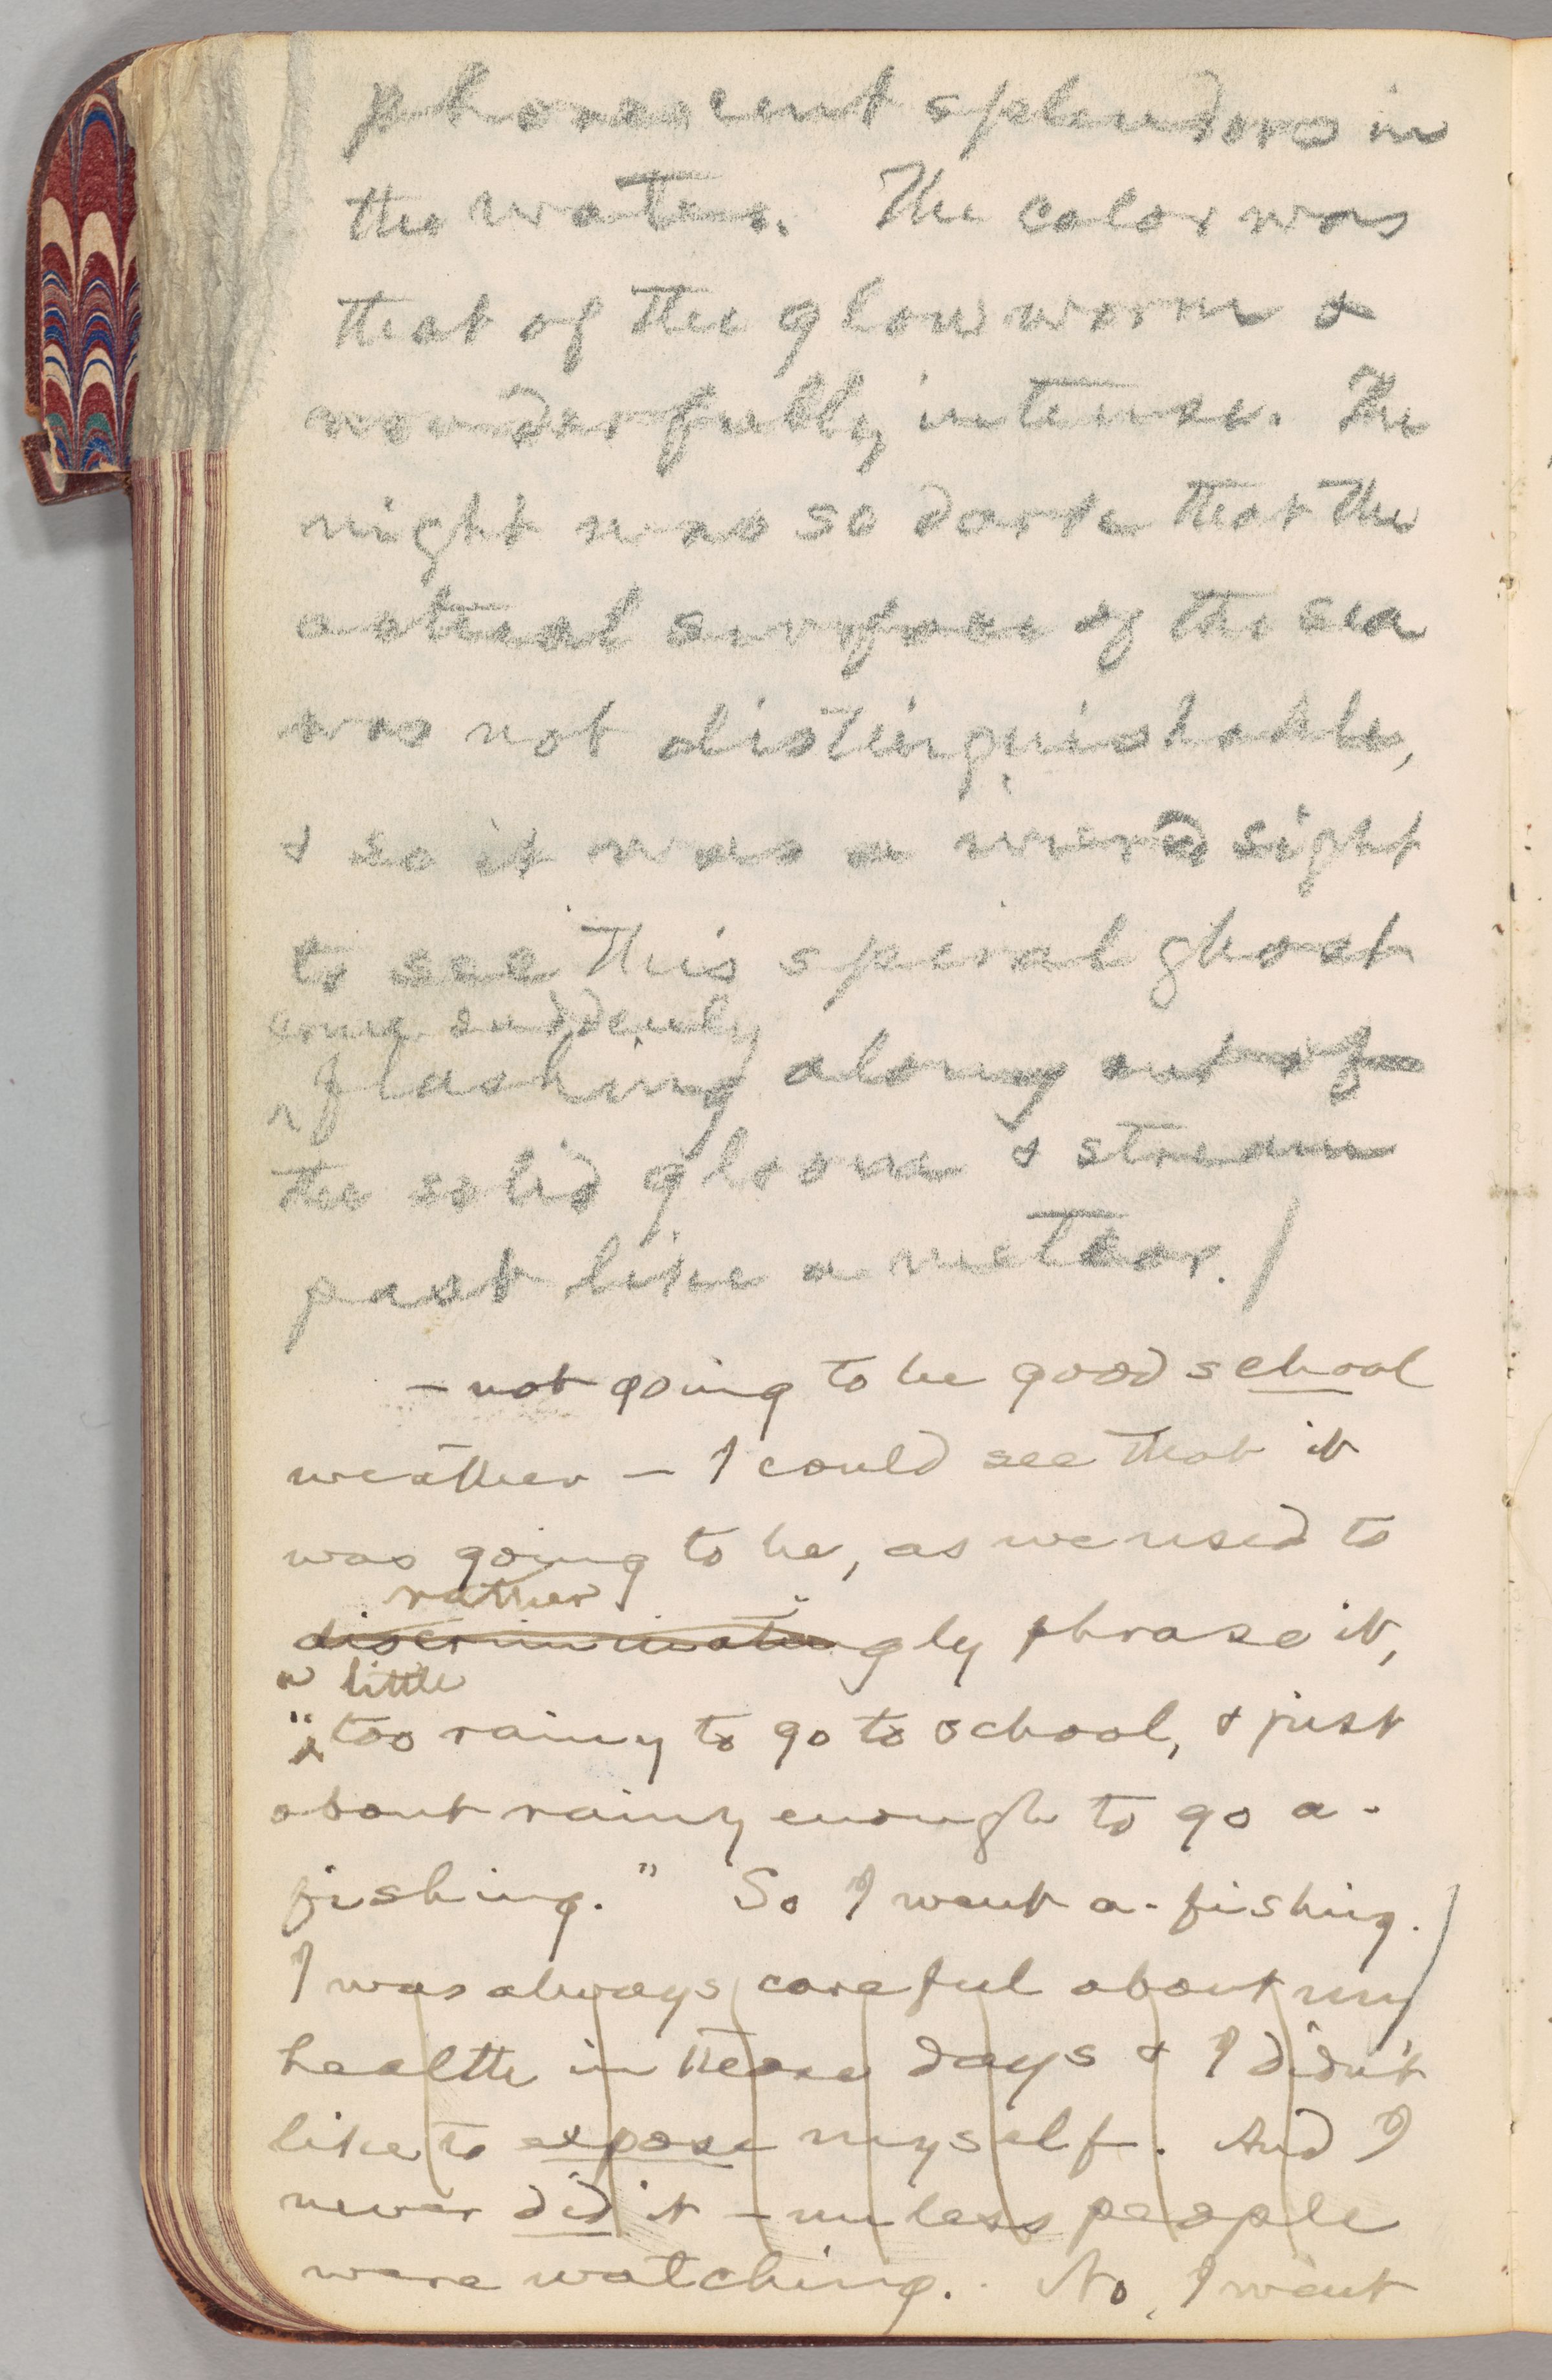 phorescent splendors in
the water. The color was
that of the glowworm &
wonderfully intense. The
night was so dark that the
actual surface of the sea
was not distinguishable,
& so it was a wierd sight
to see this spiral ghost
come suddenly
^ flashing along out of
the solid gloom & stream
past like a meteor. /
– not going to be good school
weather – I could see that it
was going to be, as we used to
rather
discriminatingly phrase it,
a little
"^ too rainy to go to school, & just
about rainy enough to go a-
fishing." So I went a-fishing. /
I was always careful about my
health in those days & I didn't
like to expose myself. And I
never did it – unless people
were watching. No, I went